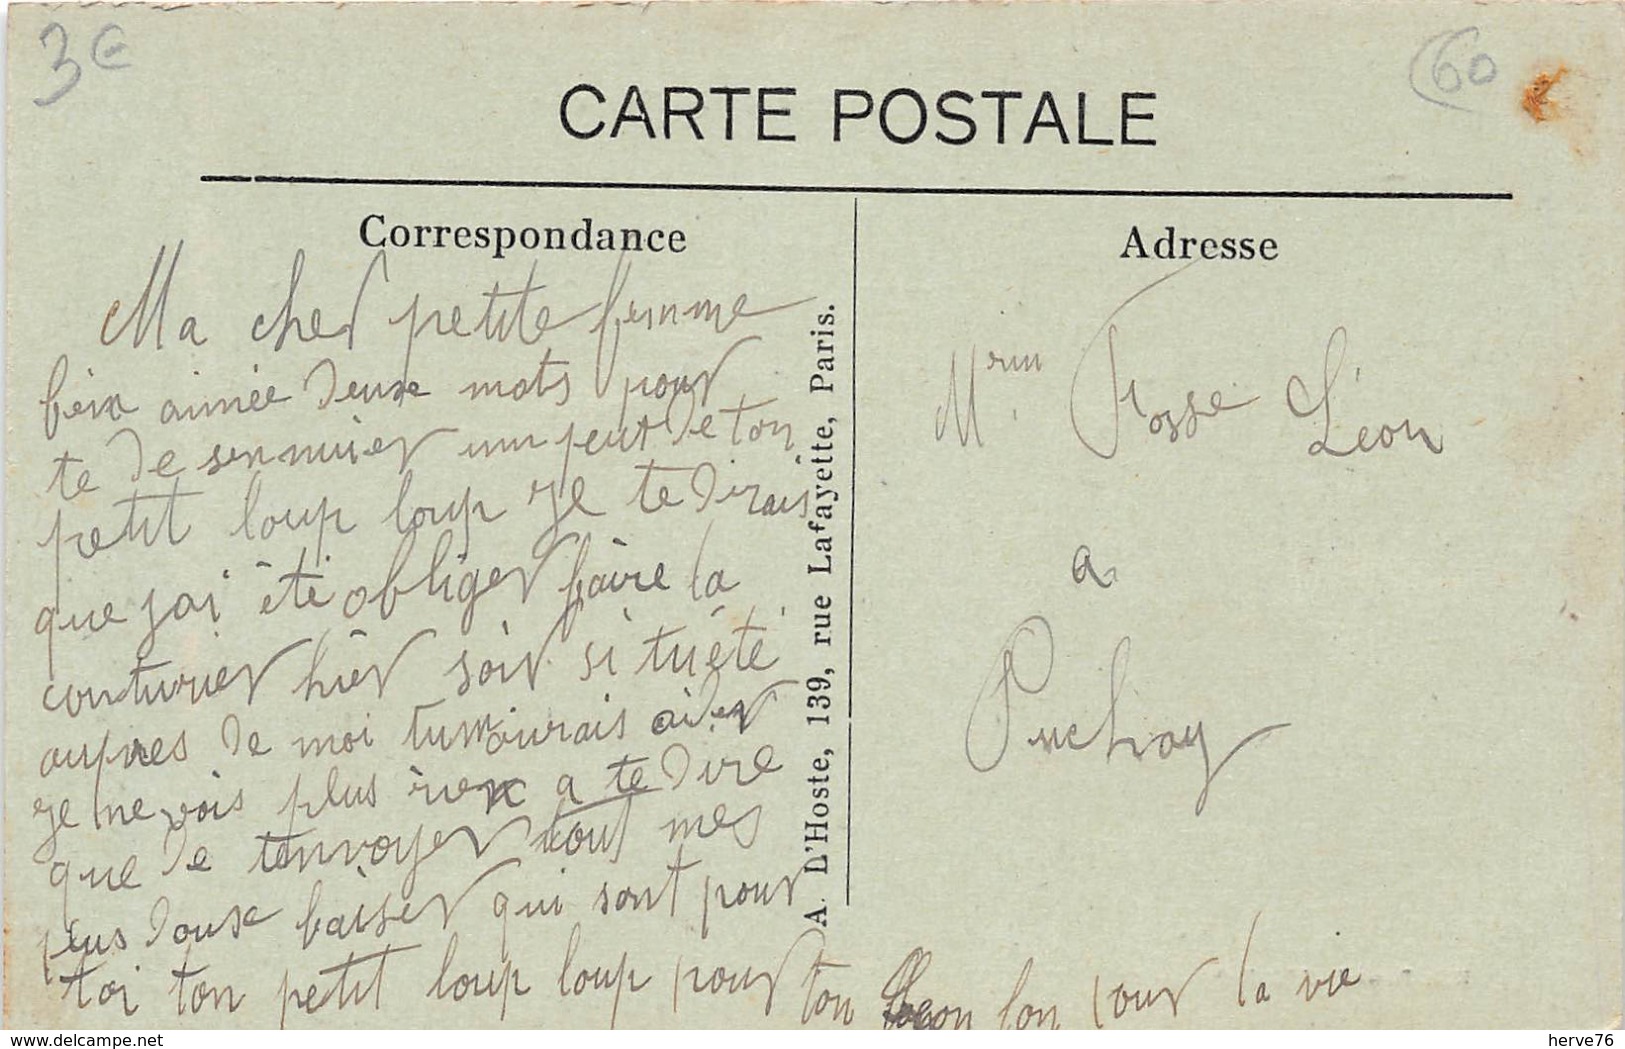 3€
60
CARTE POSTALE
Correspondance
Ma cher petite femme
bien aimée deux mots pour
te de sennuier un peut de ton
petit loup loup je te dirais
que jai été obliger faire la
couturier hier soir si tu été
aupres de moi tu m'ourais aider
je ne vois plus rien a te dire
que de tenvoyer tout mes
plus doux baiser qui sont pour
toi ton petit loup loup pour ton Leon pour la vie
A. L'Hoste, 139, rue Lafayette, Paris.
Adresse
Fosse Léon
a
Puchay
delcampe.net
herve76